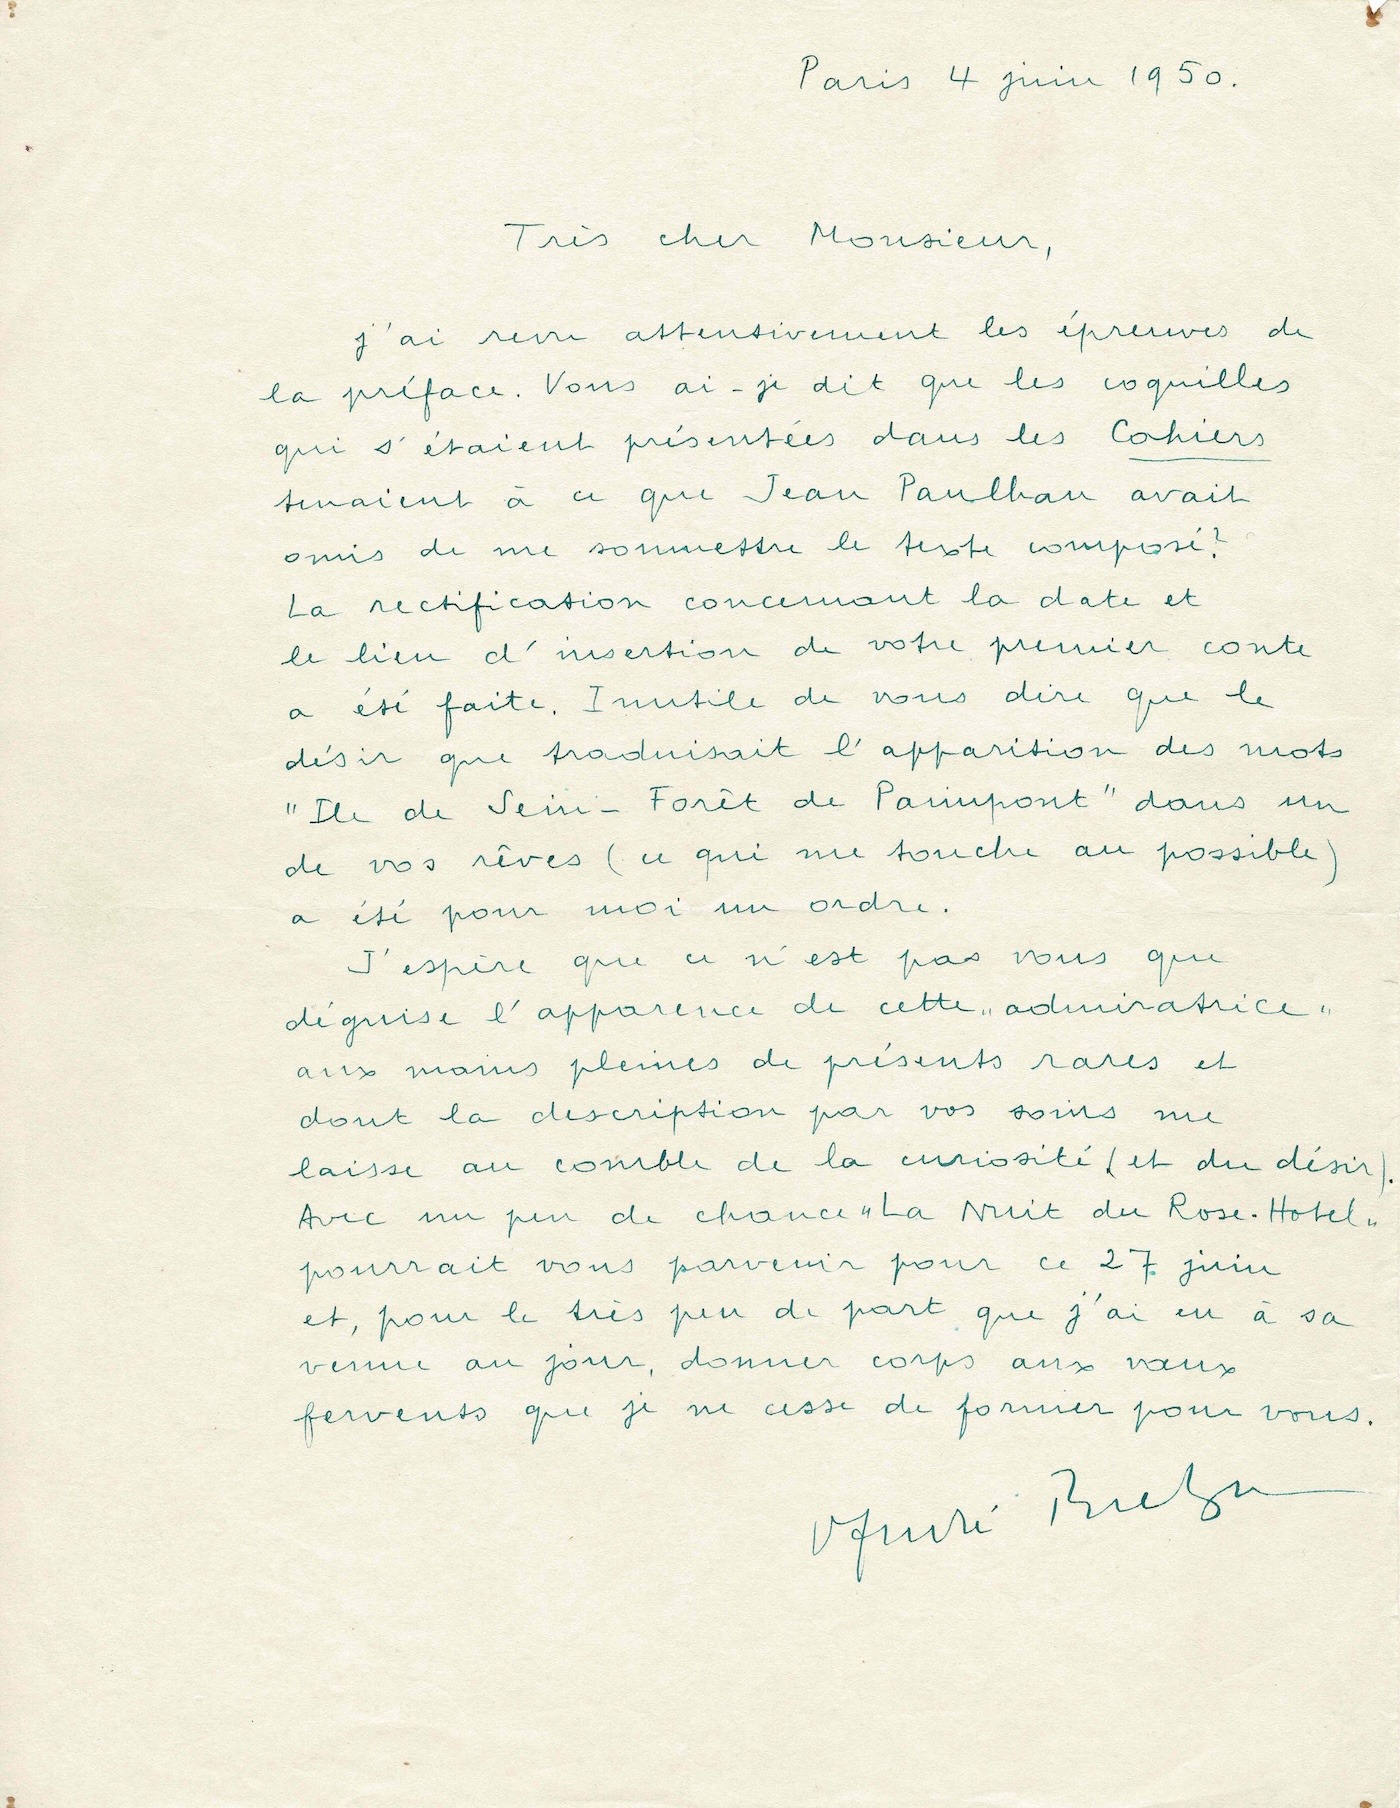 Paris 4 juin 1950.
Très cher Monsieur,
j'ai revu attentivement les épreuves de
la préface. Vous ai-je dit que les coquilles
qui s'étaient présentées dans les Cahiers
tenaient à ce que Jean Paulhan avait
omis de me soumettre le texte composé?
La rectification concernant la date et
le lieu d'insertion de votre premier conte
a été faite. Inutile de vous dire que le
désir que traduisait l'apparition des mots
"Ile de Sein - Forêt de Paimpont" dans un
de vos rêves (ce qui me touche au possible)
a été pour moi un ordre.
J'espère que ce n'est pas vous que
déguise l'apparence de cette "admiratrice"
aux mains pleines de présents rares et
dont la description par vos soins me
laisse au comble de la curiosité (et du désir).
Avec un peu de chance "La Nuit du Rose-Hotel"
pourrait vous parvenir pour ce 27 juin
et, pour le très peu de part que j'ai eu à sa
venue au jour, donner corps aux vœux
fervents que je ne cesse de former pour vous.
André Breton